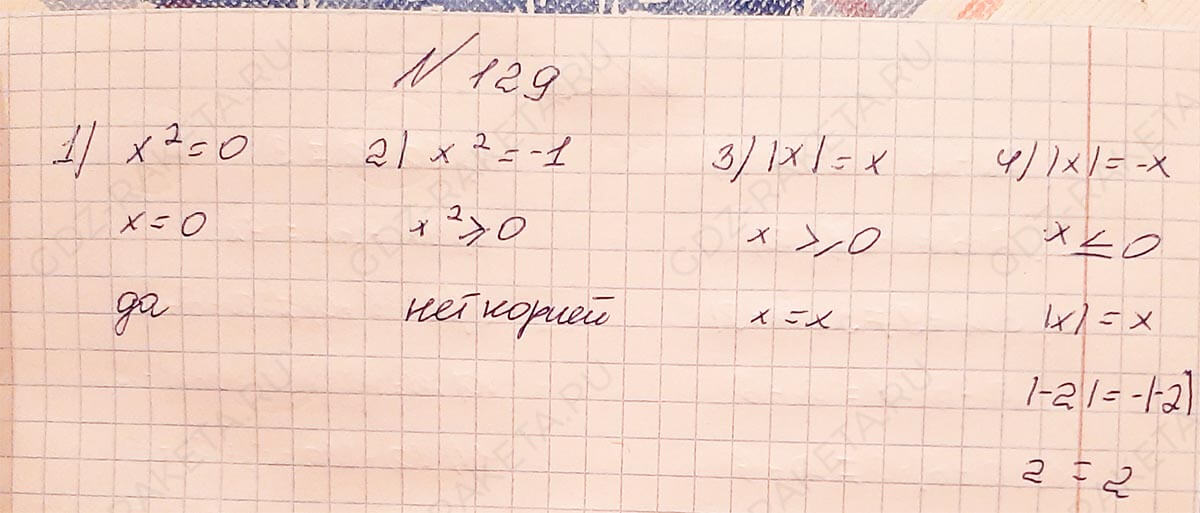 № 129
1) x² = 0
x = 0
да
2) x² = -1
x² ⩾ 0
нет корней
3) |x| = x
x ⩾ 0
x = x
4) |x| = -x
x ≤ 0
|x| = x
|-2| = -|-2|
2 = 2
GDZ-RAKETA.RU